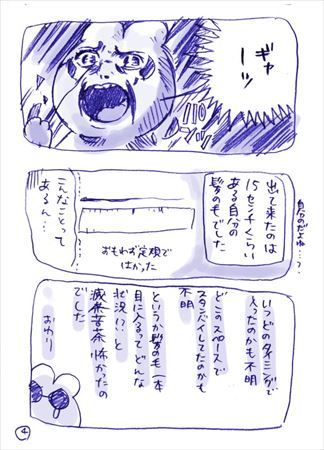 ギャーッ
出て来たのは
15センチくらい
ある自分の
髪の毛でした
自分のだよね…?
おもわず定規で
はかった
こんなことって
あるん…
いつどのタイミングで
入ったのかも不明
どこのスペースで
スタンバイしてたのかも
不明
というか髪の毛一本
目に入るってどんな
状況!?と
滅茶苦茶怖かったの
でした
おわり
4